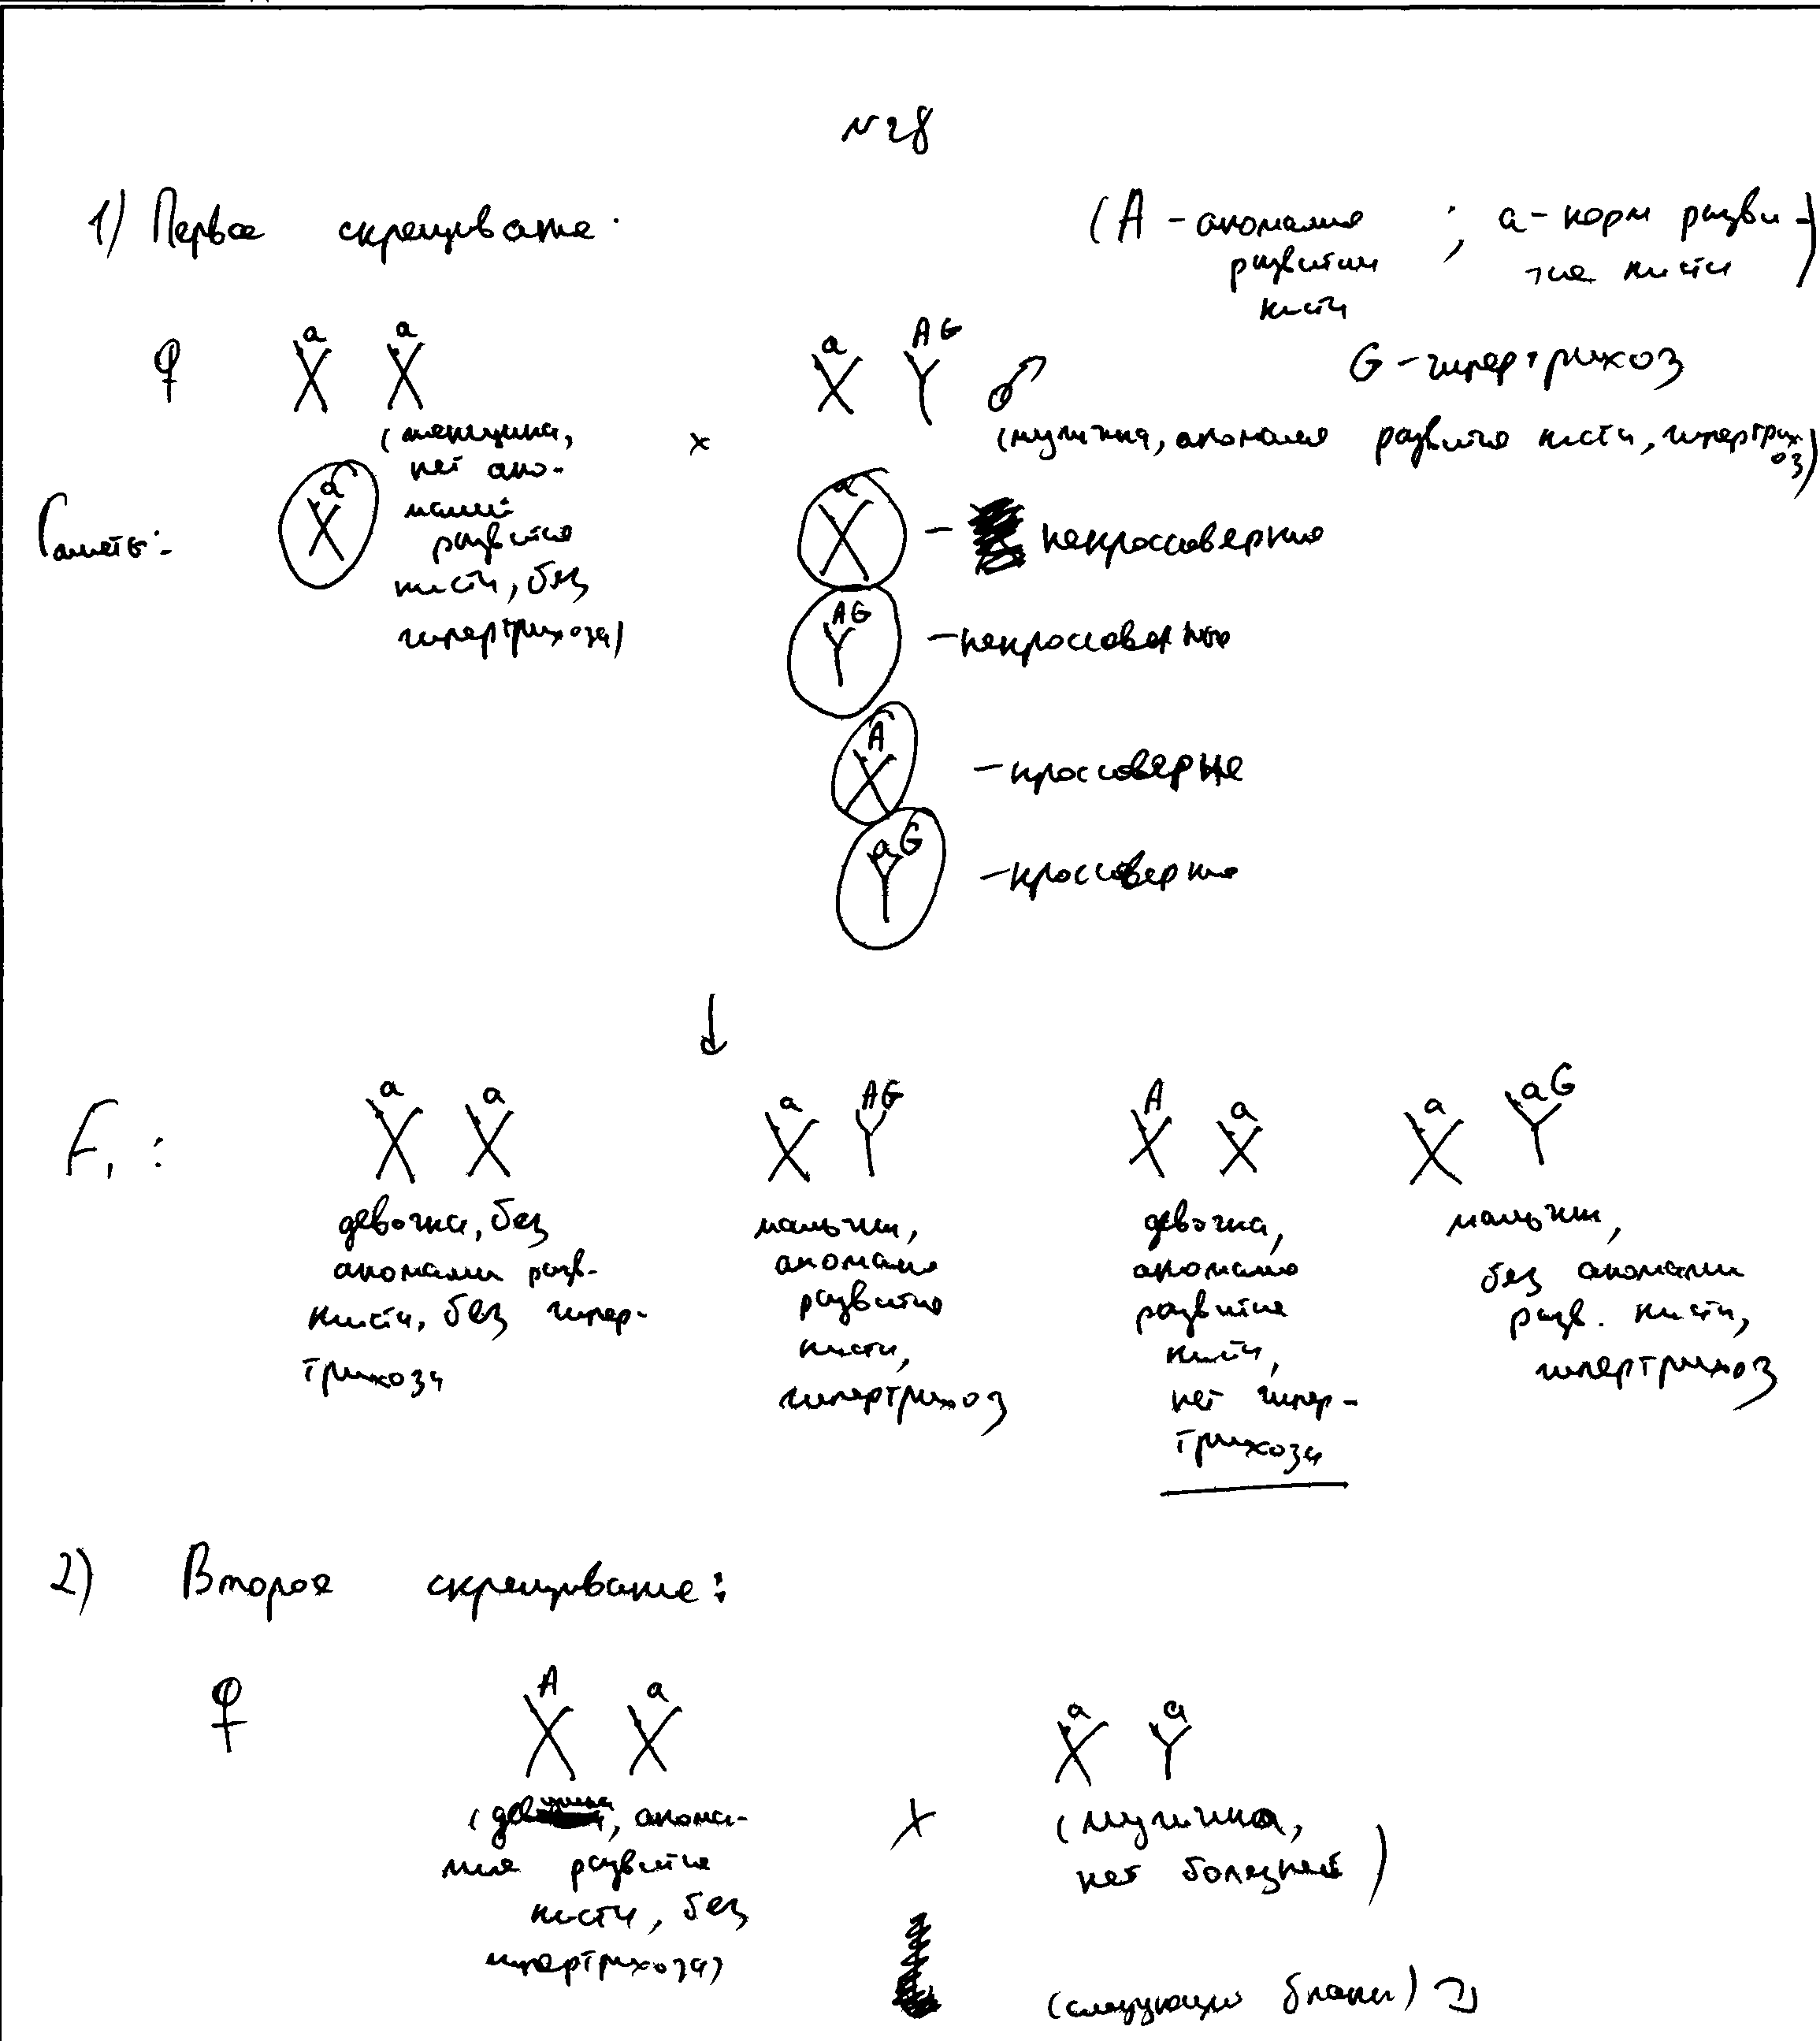 №28
1) Первое скрещивание.
(A - аномалия развития кисти ; a - норм развитие кисти)
♀ X^a X^a × X^a Y^AG ♂
G - гипертрихоз
(женщина, нет аномалий развития кисти, без гипертрихоза)
(мужчина, аномалия развития кисти, гипертрихоз)
Гаметы:
X^a
X^a - некроссоверные
Y^AG - некроссоверные
X^A - кроссоверные
Y^aG - кроссоверные
↓
F1 : X^a X^a X^a Y^AG X^A X^a X^a Y^aG
девочка, без аномалии разв. кисти, без гипертрихоза
мальчик, аномалия развития кисти, гипертрихоз
девочка, аномалия развития кисти, нет гипертрихоза
мальчик, без аномалии разв. кисти, гипертрихоз
2) Второе скрещивание:
♀ X^A X^a × X^a Y^a
аномалия развития кисти, без гипертрихоза)
(мужчина, нет болезней)
(следующий бланк)